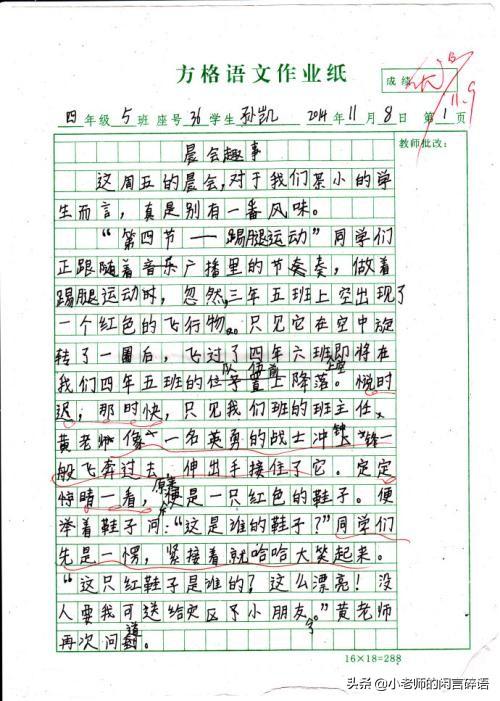 方格语文作业纸
成绩 优 11.9
四年级 5班 座号36 学生 孙凯 2014年11月8日 第1页
教师批改：
晨会趣事
这周五的晨会，对于我们某小的学
生而言，真是别有一番风味。
“第四节——踢腿运动”同学们
正跟随着音乐广播里的节奏，做着
踢腿运动时，忽然，三年五班上空出现了
一个红色的飞行物。只见它在空中旋
转了一圈后，飞过了四年六班即将在
我们四年五班的队伍前上空降落。说时
迟，那时快，只见我们班的班主任、
黄老师像一名英勇的战士冲锋一
般飞奔过去，伸出手接住了它。定定
睛一看，原来是一只红色的鞋子。便
举着鞋子问：“这是谁的鞋子？”同学们
先是一愣，紧接着就哈哈大笑起来。
“这只红鞋子是谁的？这么漂亮！没
人要我可送给灾区予小朋友。”黄老师
再次问道。
16×18=288
头条 @小老师的闲言碎语